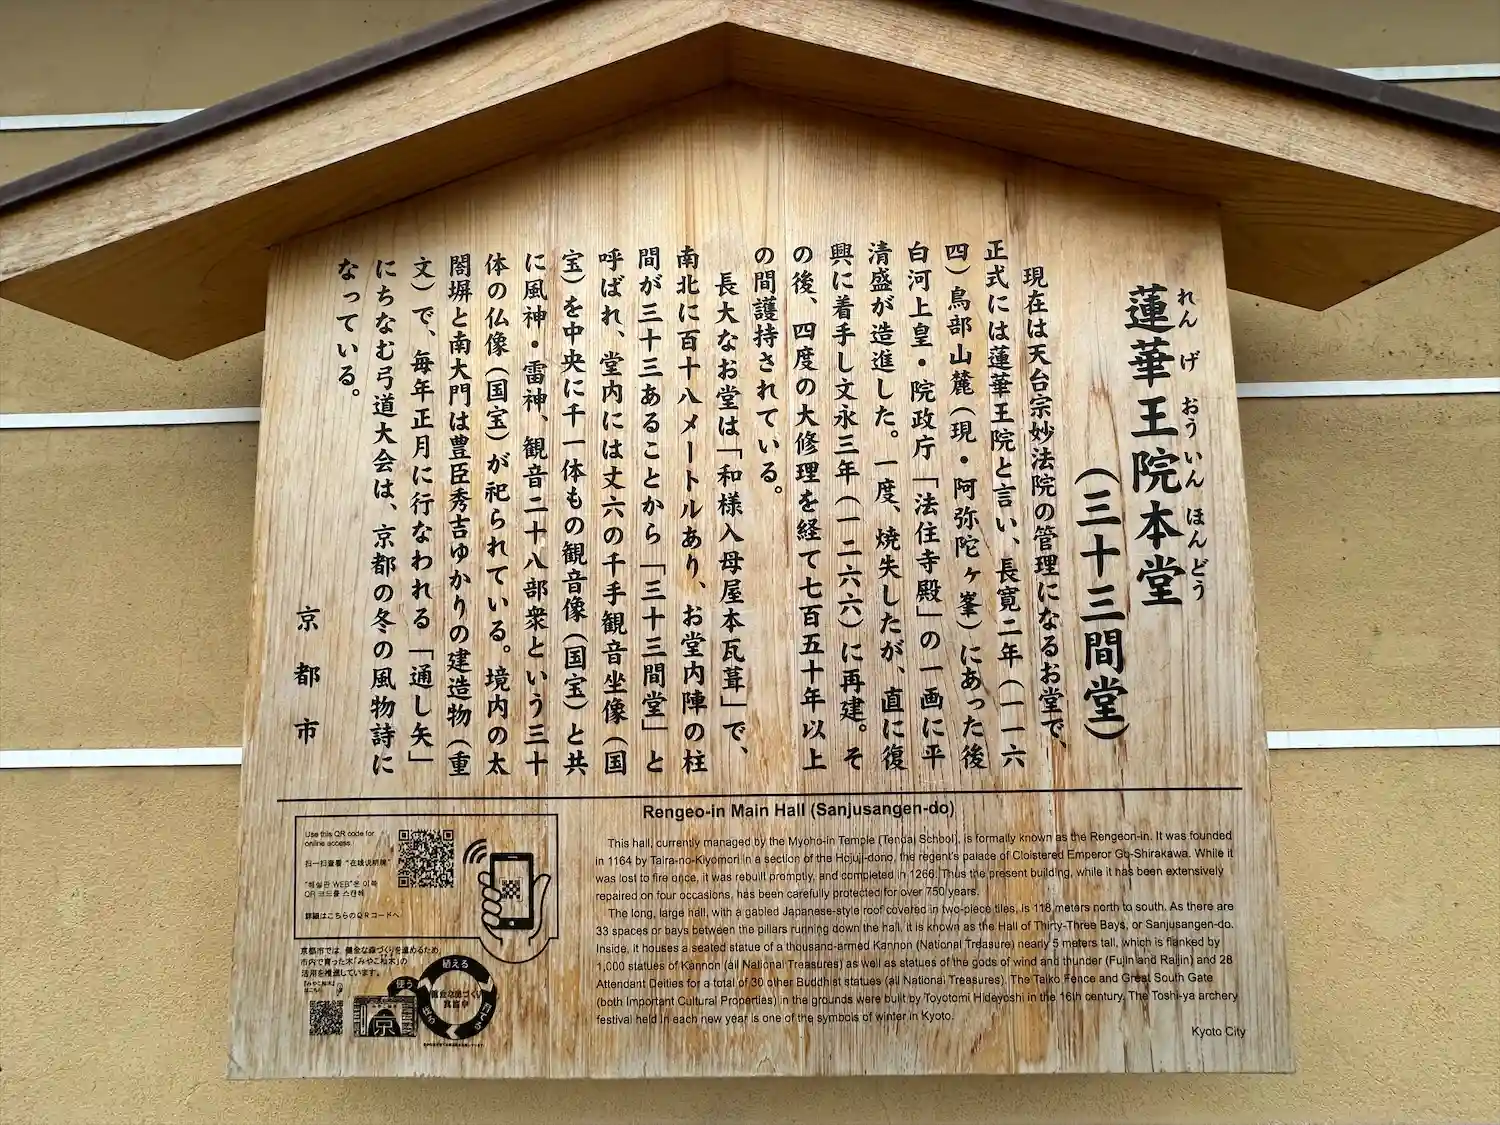 蓮華王院本堂
れんげおういんほんどう
(三十三間堂)
現在は天台宗妙法院の管理になるお堂で、
正式には蓮華王院と言い、長寛二年(一一六
四)鳥部山麓(現・阿弥陀ヶ峯)にあった後
白河上皇・院政庁「法住寺殿」の一画に平
清盛が造進した。一度、焼失したが、直に復
興に着手し文永三年(一二六六)に再建。そ
の後、四度の大修理を経て七百五十年以上
の間護持されている。
長大なお堂は「和様入母屋本瓦葺」で、
南北に百十八メートルあり、お堂内陣の柱
間が三十三あることから「三十三間堂」と
呼ばれ、堂内には丈六の千手観音坐像(国
宝)を中央に千一体もの観音像(国宝)と共
に風神・雷神、観音二十八部衆という三十
体の仏像(国宝)が祀られている。境内の太
閤塀と南大門は豊臣秀吉ゆかりの建造物(重
文)で、毎年正月に行なわれる「通し矢」
にちなむ弓道大会は、京都の冬の風物詩に
なっている。
京都市
Rengeo-in Main Hall (Sanjusangen-do)
This hall, currently managed by the Myoho-in Temple (Tendai School), is formally known as the Rengeon-in. It was founded
in 1164 by Taira-no-Kiyomori in a section of the Hojuji-dono, the regent's palace of Cloistered Emperor Go-Shirakawa. While it
was lost to fire once, it was rebuilt promptly, and completed in 1266. Thus the present building, while it has been extensively
repaired on four occasions, has been carefully protected for over 750 years.
The long, large hall, with a gabled Japanese-style roof covered in two-piece tiles, is 118 meters north to south. As there are
33 spaces or bays between the pillars running down the hall, it is known as the Hall of Thirty-Three Bays, or Sanjusangen-do.
Inside, it houses a seated statue of a thousand-armed Kannon (National Treasure) nearly 5 meters tall, which is flanked by
1,000 statues of Kannon (all National Treasures) as well as statues of the gods of wind and thunder (Fujin and Raijin) and 28
Attendant Deities for a total of 30 other Buddhist statues (all National Treasures). The Taiko Fence and Great South Gate
(both Important Cultural Properties) in the grounds were built by Toyotomi Hideyoshi in the 16th century. The Toshi-ya archery
festival held in each new year is one of the symbols of winter in Kyoto.
Kyoto City
Use this QR code for
online access.
扫一扫查看“在线说明牌”
"해설판 WEB"은 이쪽
QR 코드를 스캔해
詳細はこちらのQRコードへ
京都市では、健全な森づくりを進めるため、
市内で育った木「みやこ杣木」の
活用を推進しています。
「みやこ杣木」
はこちら
植える
使う
京